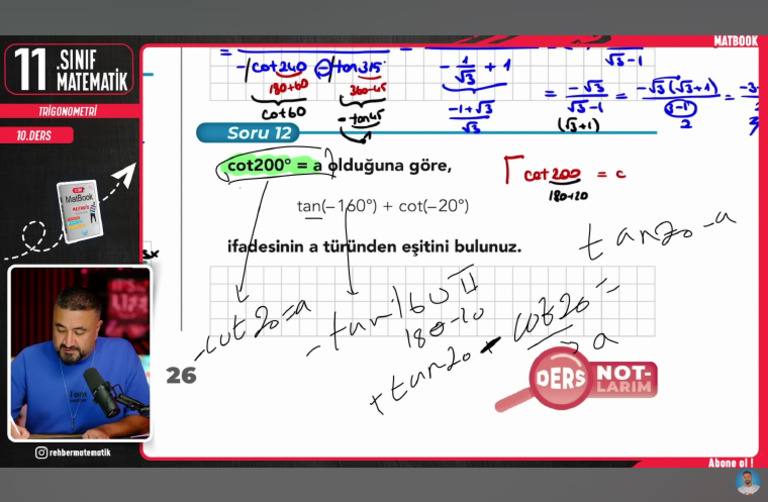 MATBOOK
11 .SINIF
MATEMATİK
TRİGONOMETRİ
10.DERS
MatBook
-/cot240 - tan315
180+60 360-45
cot60 -tan45
-1/√3 + 1
-1+√3
√3
√3-1
= -√3/(√3-1) = -√3(√3+1)/(3-1) =
(√3+1)
2
Soru 12
cot200° = a olduğuna göre,
cot200 = c
180+20
tan(−160°) + cot(−20°)
ifadesinin a türünden eşitini bulunuz.
tan20 -a
-cot20=a
-tan160 II
180-20
cot20=
+tan20 -
a
26
DERS NOT-
LARIM
rehbermatematik
Abone ol !